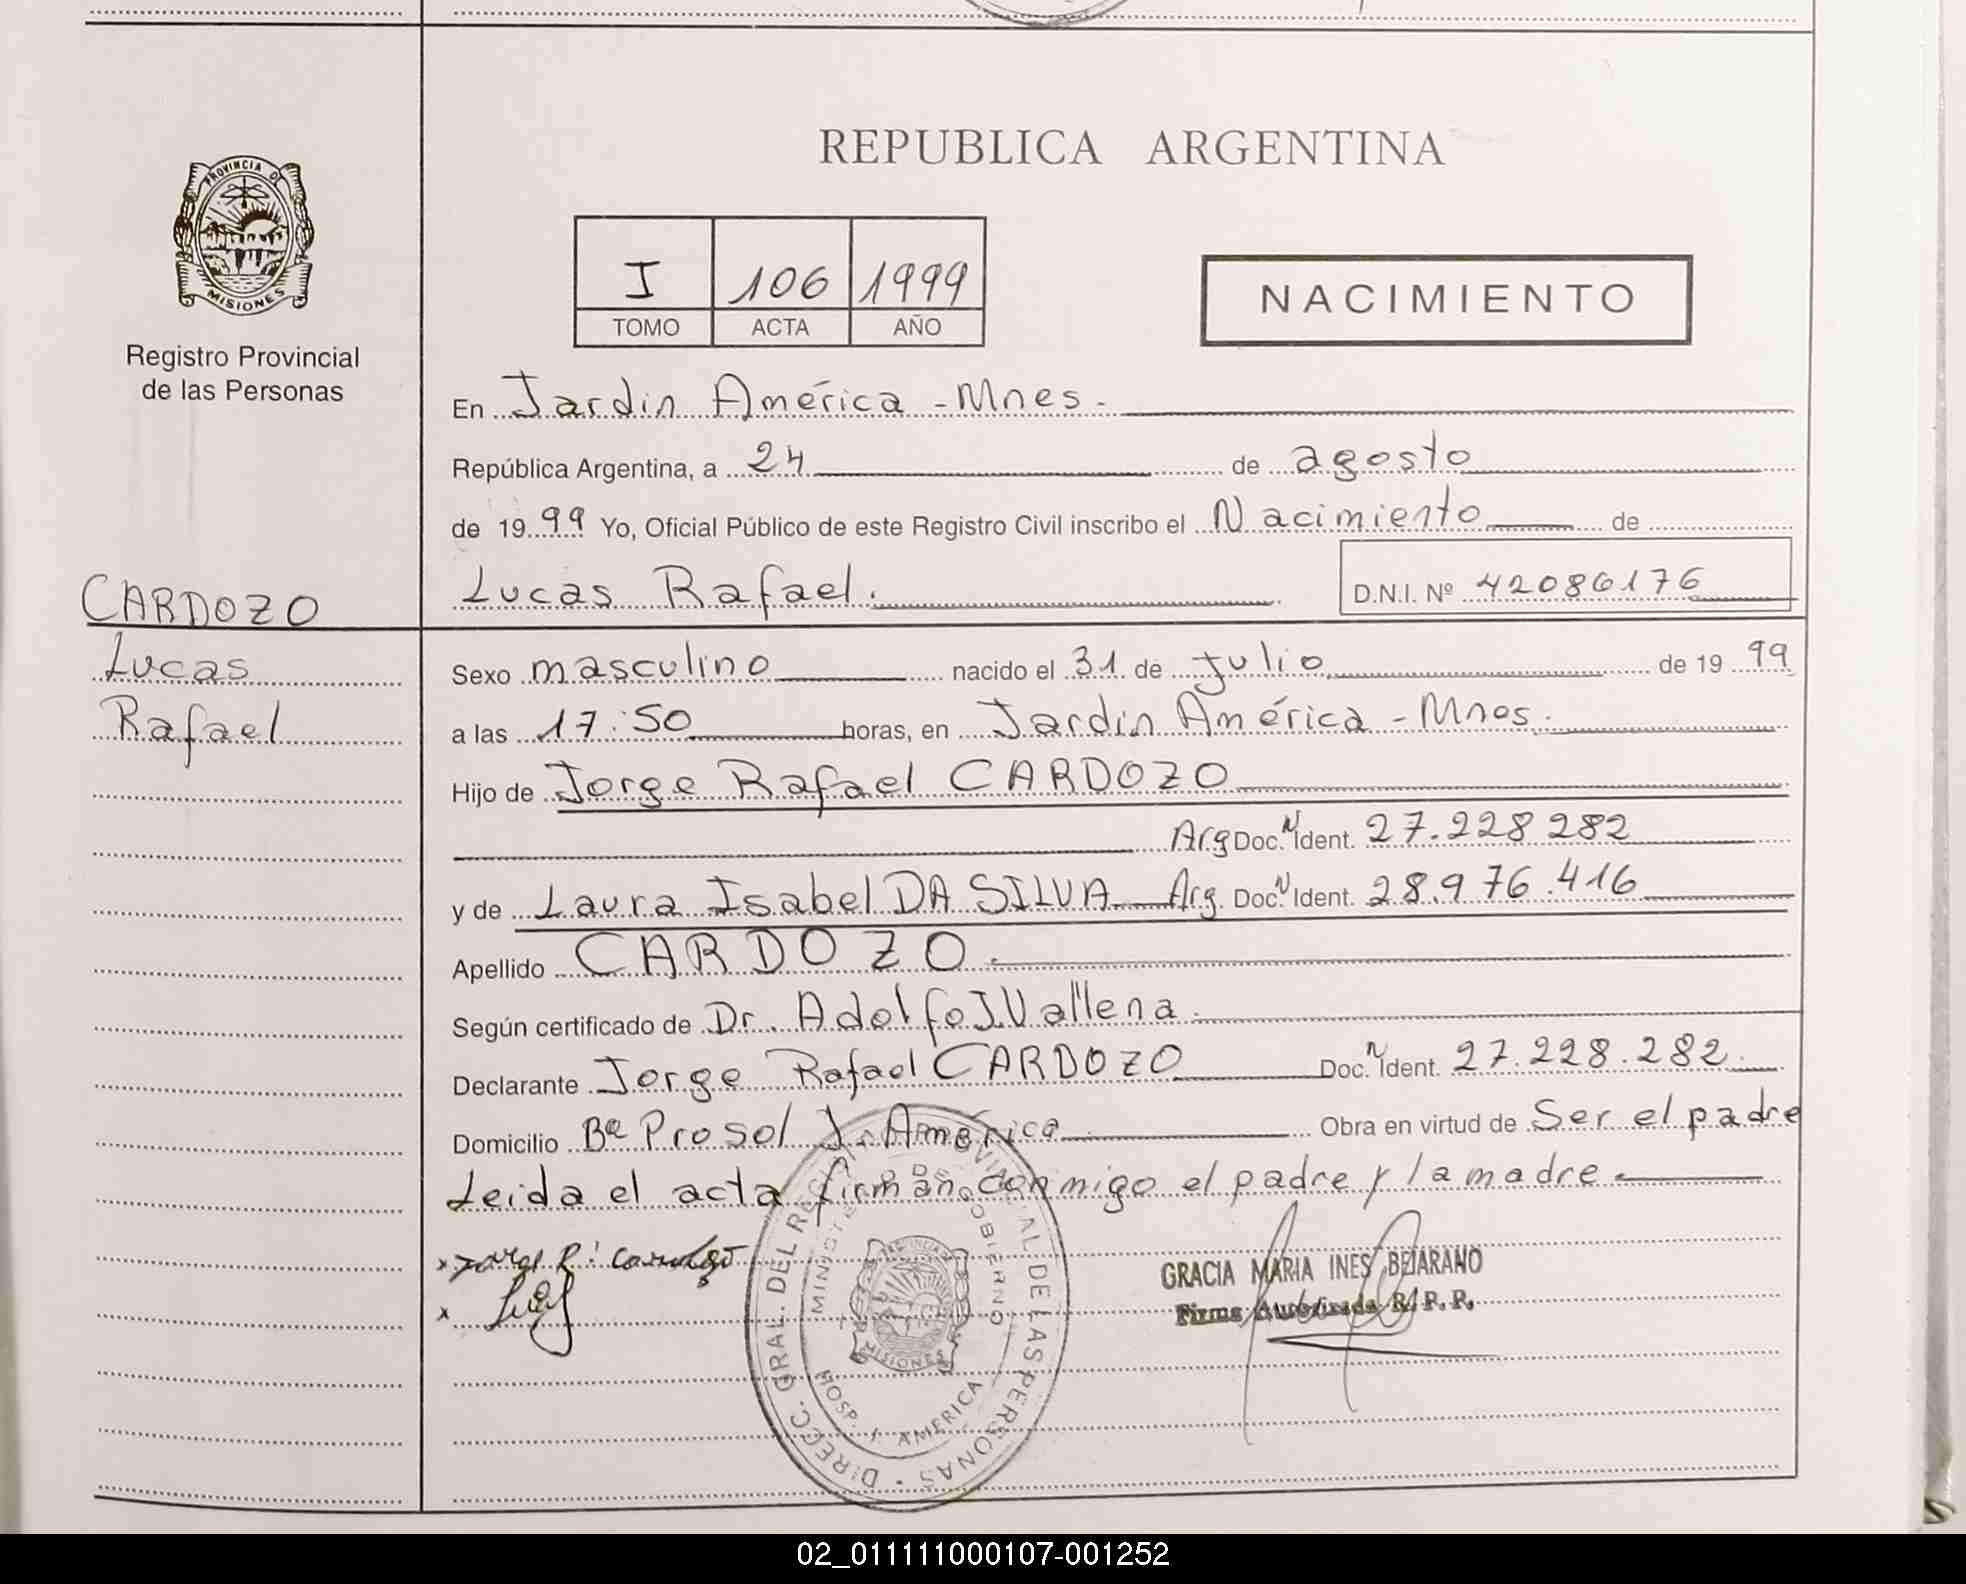 REPUBLICA ARGENTINA
PROVINCIA DE
MISIONES
Registro Provincial
de las Personas
I 106 1999
TOMO ACTA AÑO
NACIMIENTO
En Jardin América - Mnes.
República Argentina, a 24 de agosto
de 1999 Yo, Oficial Público de este Registro Civil inscribo el Nacimiento de
Lucas Rafael. D.N.I. Nº 42086176
CARDOZO
Lucas
Rafael
Sexo masculino nacido el 31 de Julio de 1999
a las 17:50 horas, en Jardin América - Mnes.
Hijo de Jorge Rafael CARDOZO
Arg Doc. N Ident. 27.228.282
y de Laura Isabel DA SILVA Arg. Doc. N Ident. 28.976.416
Apellido CARDOZO.
Según certificado de Dr. Adolfo J. Vallena.
Declarante Jorge Rafael CARDOZO Doc. N Ident. 27.228.282.
Domicilio Bº Prosol J. América Obra en virtud de Ser el padre
Leida el acta firman conmigo el padre y la madre.
GRACIA MARIA INES BEJARANO
Firma Autorizada R. P. P.
DIRECC. GRAL. DEL REGISTRO PROVINCIAL DE LAS PERSONAS
MINISTERIO DE GOBIERNO
MISIONES
HOSP. J. AMERICA
02_011111000107-001252